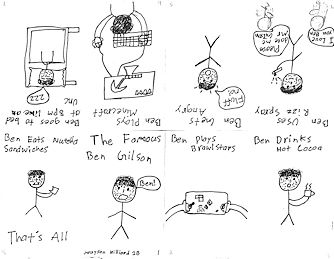 ZZZ
Ben goes to bed
at 8pm like an
Unc
Ben
Plays
Minecraft
Ben Gets
Angry
I Love
you Ben
Please
date me
Ben
Uses
Rizz Spray
Ben Eats Nutella
Sandwiches
The Famous
Ben Gilson
Ben Plays
Brawlstars
Ben Drinks
Hot Cocoa
Ben!
That's All